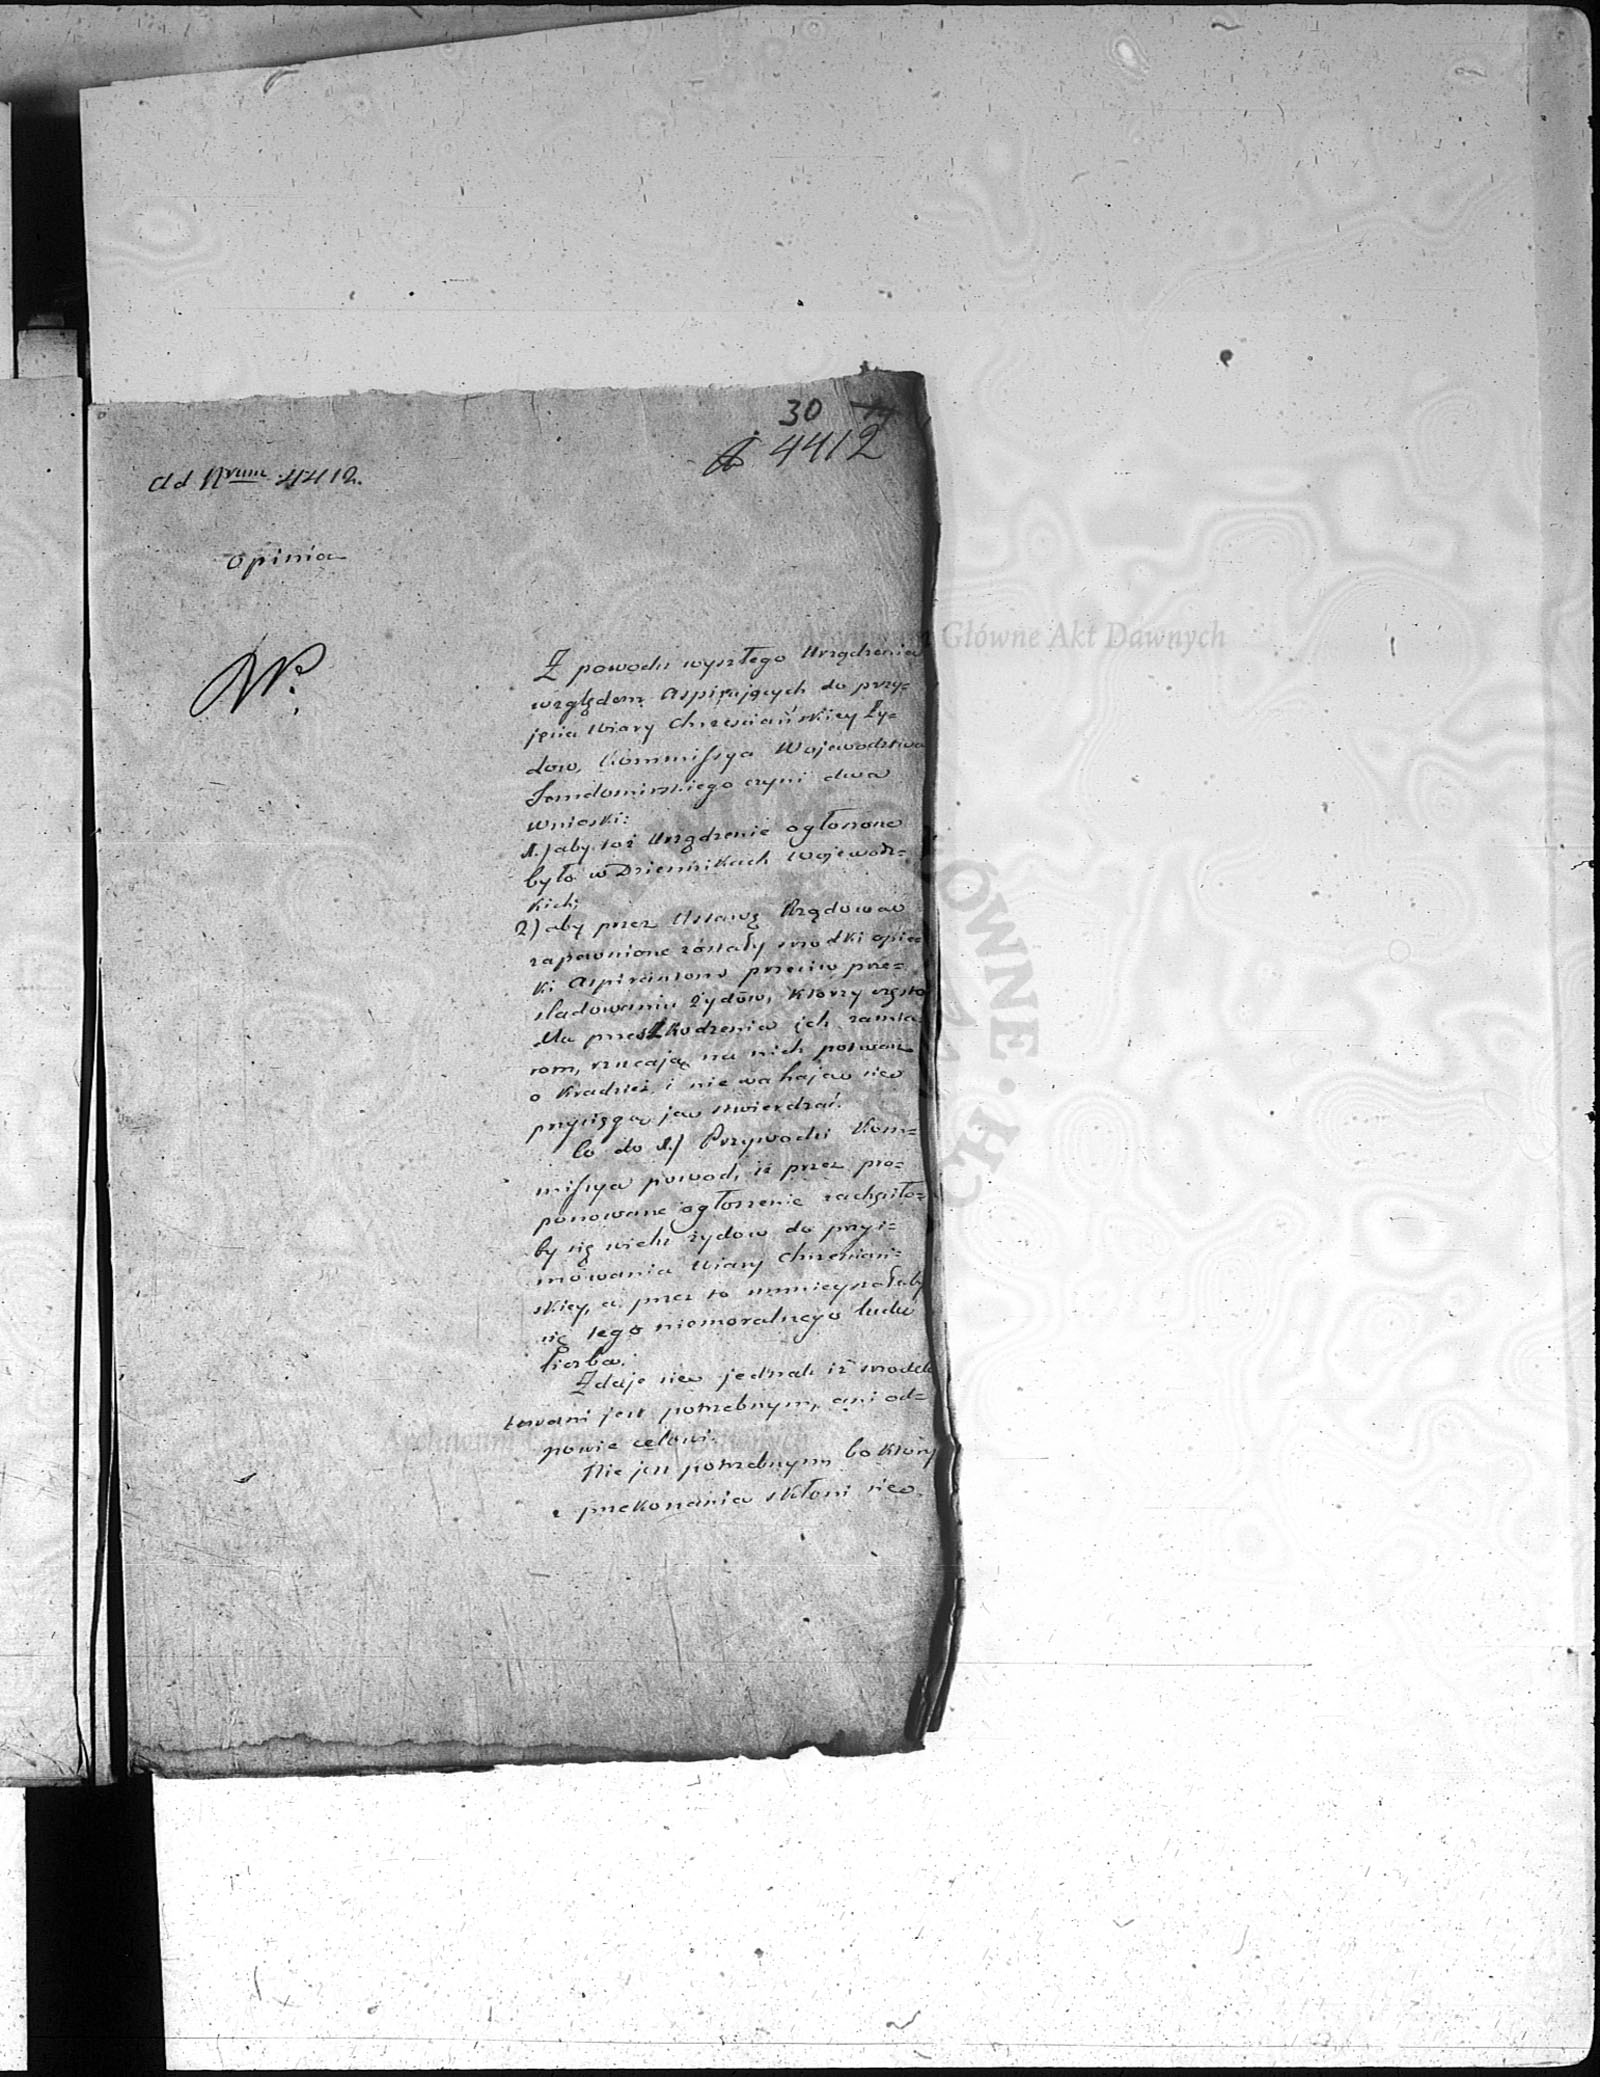 30
4412
Ad Nrum 4412.
Opinia
Z powodu wyszłego Urządzenia
względem Aspirujących do przy=
jęcia Wiary Chrześciańskiey Ży=
dow, Kommissya Wojewodztwa
Sandomirskiego czyni dwa
wnioski:
1.) aby toż Urządzenie ogłoszone
było w Dziennikach Wojewodz=
kich;
2) aby przez Ustawę Rządowa
zapewnione zostały srodki opie
ki Aspirantom przeciw prze=
sladowaniu Żydów, ktorzy często
dla przeszkodzenia ich zamia
rom, rzucają na nich potwarz
o kradzież i nie wahaja sie
przysięga ja stwierdzać.
Co do 1.) Przywodzi Kom=
missya powod, iż przez pro=
ponowane ogłoszenie zachęciło=
by się wielu żydow do przyi=
mowania Wiary Chrześciań=
skiey, a przez to umnieyszałaby
się tego niemoralnego ludu
liczba.
Zdaje sie jednak iż srodek
ten ani jest potrzebnym, ani od=
powie celowi.
Nie jest potrzebnym, bo ktory
z przekonania skłoni sie
Archiwum Główne Akt Dawnych
Archiwum Główne Akt Dawnych